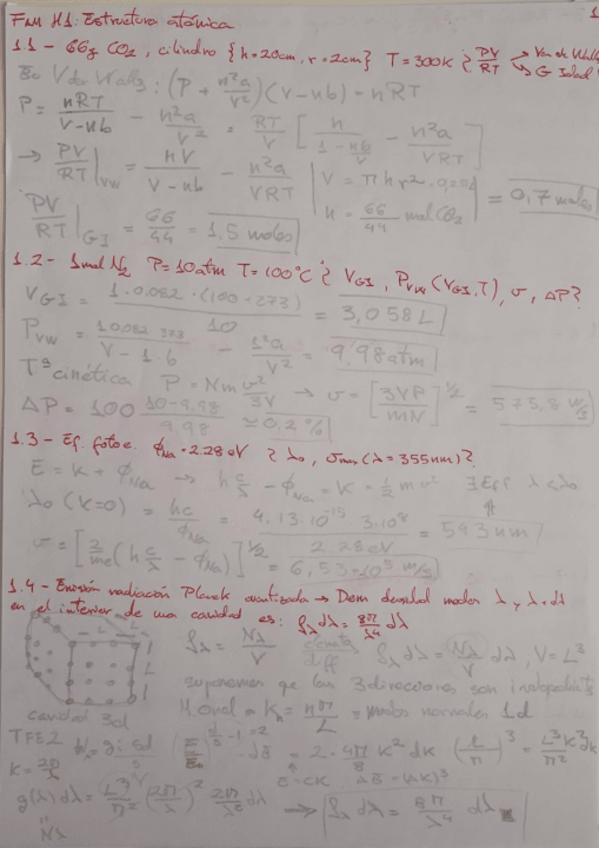 FAM H1: Estructura atómica. 1
1.1 - 66g CO₂, cilindro {h=20cm, r=2cm} T=300K ¿ PV/RT → Van de Walls → G Ideal?
En V der Walls: (P + n²a/V²)(V-nb) = nRT
P = nRT/(V-nb) - n²a/V² = RT/V [ n/(1-nb/V) - n²a/VRT ]
→ PV/RT|VW = nV/(V-nb) - n²a/VRT | V = π h r² = 0,25 | = 0,7 moles
n = 66/44 mol CO₂
PV/RT|GI = 66/44 = 1,5 moles
1.2 - 1mol N₂ P=10atm T=100°C ¿ V_GI, P_VW(V_GI,T), v, ΔP?
V_GI = 1·0.082·(100+273)/10 = 3,058L
P_VW = 1 0.082 373/(V-1·b) - 1²a/V² = 9,98atm
Tª cinética P = Nm v²/3V → v = [3VP/mN]^1/2 = 575,8 m/s
ΔP = 100 (10-9.98)/9.98 ≃ 0,2%
1.3 - Ef. fotoe. ϕ_Na = 2.28eV ¿ λ₀, v_max(λ=355nm)?
E = K + ϕ_Na → h c/λ - ϕ_Na = K = ½ m v² ∃ Eff λ<λ₀
λ₀ (K=0) = hc/ϕ_Na = 4.13·10⁻¹⁵ 3·10⁸/2.28eV = 543nm
v = [2/me (h c/λ - ϕ_Na)]^1/2 = 6,53·10⁵ m/s
1.4 - Emisión radiación Planck cuantizada → Dem densidad modos λ y λ+dλ
en el interior de una cavidad es: ρ_λ dλ = 8π/λ⁴ dλ
ρ_λ = Nλ/V diff ρ_λ dλ = Nλ/V dλ, V=L³
suponemos que las 3 direcciones son independients
K_n = nπ/L = modos normales 1d
cavidad 3d
TFE2
K = 2π/λ
= 2 · 4π/8 K² dK (L/π)³ = L³K²dK/π²
E=cK
g(λ)dλ = L³/π² (2π/λ)² 2π/λ² dλ → ρ_λ dλ = 8π/λ⁴ dλ
Nλ